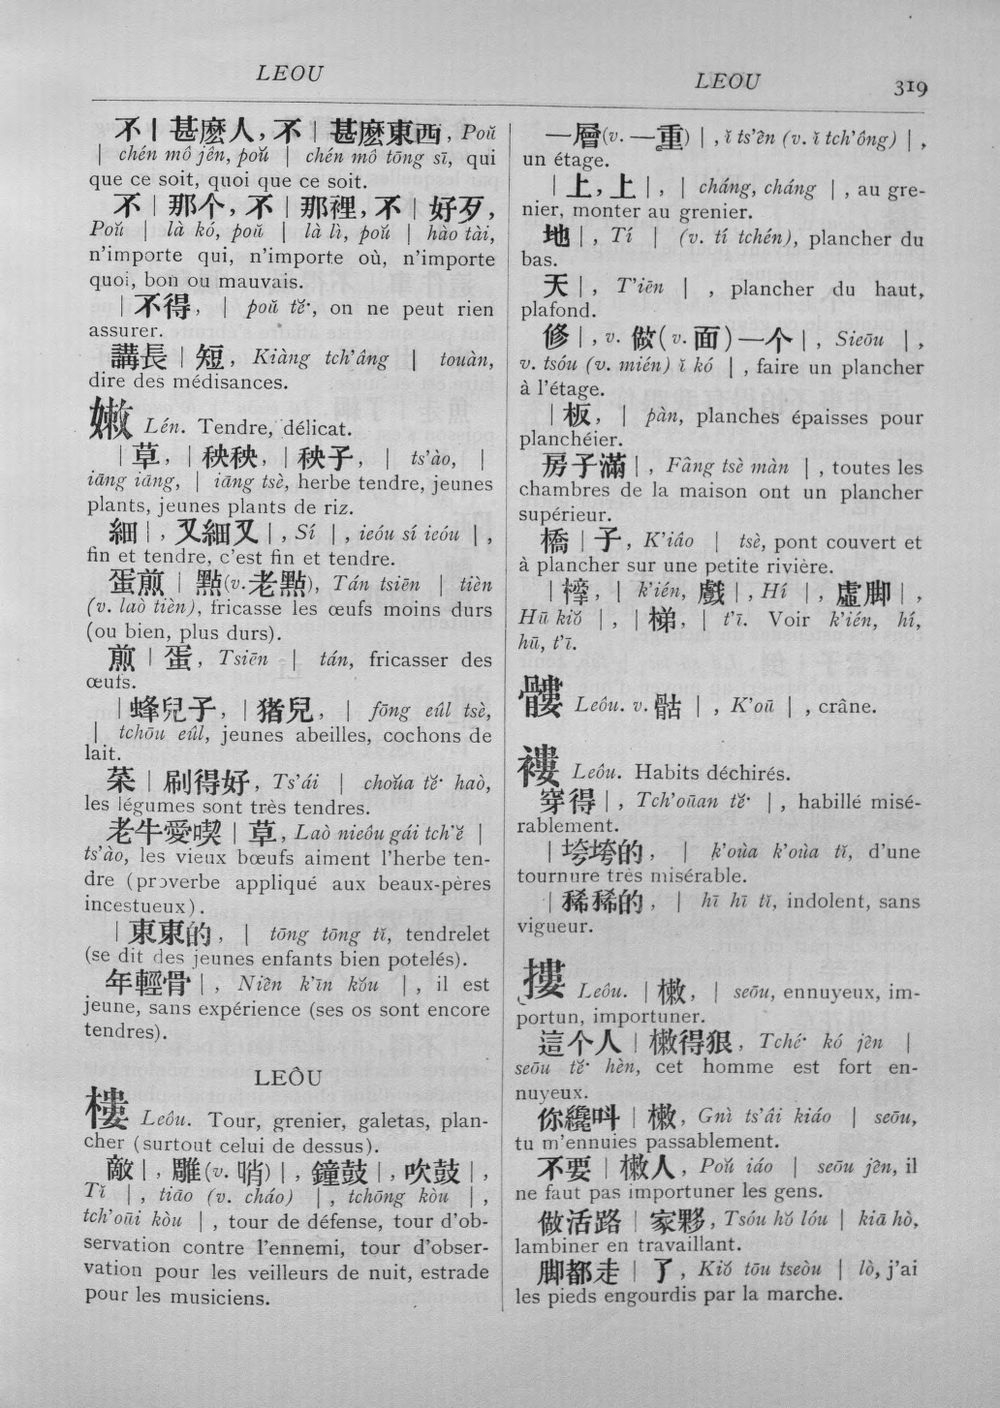 LEOU
LEOU
319
不 | 甚麽人, 不 | 甚麽東西, Poŭ
| chén mô jên, poŭ | chén mô tōng sī, qui
que ce soit, quoi que ce soit.
不 | 那个, 不 | 那裡, 不 | 好歹,
Poŭ | là kó, poŭ | là lì, poŭ | hào tài,
n'importe qui, n'importe où, n'importe
quoi, bon ou mauvais.
| 不得, | poŭ tĕ·, on ne peut rien
assurer.
講長 | 短, Kiàng tch'âng | touàn,
dire des médisances.
嫩 Lén. Tendre, délicat.
| 草, | 秧秧, | 秧子, | ts'ào, |
iāng iāng, | iāng tsè, herbe tendre, jeunes
plants, jeunes plants de riz.
細 |, 又細又 |, Sí |, ieóu sí ieóu |,
fin et tendre, c'est fin et tendre.
蛋煎 | 點(v. 老點), Tán tsiēn | tièn
(v. laò tièn), fricasse les œufs moins durs
(ou bien, plus durs).
煎 | 蛋, Tsiēn | tán, fricasser des
œufs.
| 蜂兒子, | 猪兒, | fōng eûl tsè,
| tchōu eûl, jeunes abeilles, cochons de
lait.
菜 | 刷得好, Ts'ái | choŭa tĕ· haò,
les légumes sont très tendres.
老牛愛喫 | 草, Laò nieôu gái tch'ĕ |
ts'ào, les vieux bœufs aiment l'herbe ten-
dre (proverbe appliqué aux beaux-pères
incestueux).
| 東東的, | tōng tōng tĭ, tendrelet
(se dit des jeunes enfants bien potelés).
年輕骨 |, Niên k'īn kŏu |, il est
jeune, sans expérience (ses os sont encore
tendres).
LEÔU
樓 Leôu. Tour, grenier, galetas, plan-
cher (surtout celui de dessus).
敵 |, 雕(v. 哨) |, 鐘鼓 |, 吹鼓 |,
Tĭ |, tiāo (v. cháo) |, tchōng kòu |,
tch'oūi kòu |, tour de défense, tour d'ob-
servation contre l'ennemi, tour d'obser-
vation pour les veilleurs de nuit, estrade
pour les musiciens.
一層(v. 一重) |, ĭ ts'ên (v. ĭ tch'ông) |,
un étage.
| 上, 上 |, | cháng, cháng |, au gre-
nier, monter au grenier.
地 |, Tí | (v. tí tchén), plancher du
bas.
天 |, T'iēn |, plancher du haut,
plafond.
修 |, v. 做(v. 面)一个 |, Sieōu |,
v. tsóu (v. mién) ĭ kó |, faire un plancher
à l'étage.
| 板, | pàn, planches épaisses pour
planchéier.
房子滿 |, Fâng tsè màn |, toutes les
chambres de la maison ont un plancher
supérieur.
橋 | 子, K'iâo | tsè, pont couvert et
à plancher sur une petite rivière.
| k'ién, 戲 |, Hí |, 虛脚 |,
Hū kiŏ |, | 梯, | t'ī. Voir k'ién, hí,
hū, t'ī.
髏 Leôu. v. 骷 |, K'oū |, crâne.
褸 Leôu. Habits déchirés.
穿得 |, Tch'oūan tĕ· |, habillé misé-
rablement.
| 垮垮的, | k'oùa k'oùa tĭ, d'une
tournure très misérable.
| 稀稀的, | hī hī tĭ, indolent, sans
vigueur.
摟 Leôu. | 㯲, | seōu, ennuyeux, im-
portun, importuner.
這个人 | 㯲得狠, Tché· kó jên |
seōu tĕ· hèn, cet homme est fort en-
nuyeux.
你纔呌 | 㯲, Gnì ts'ái kiáo | seōu,
tu m'ennuies passablement.
不要 | 㯲人, Poŭ iáo | seōu jên, il
ne faut pas importuner les gens.
做活路 | 家夥, Tsóu hŏ lóu | kiā hò,
lambiner en travaillant.
脚都走 | 了, Kiŏ tōu tseòu | lò, j'ai
les pieds engourdis par la marche.